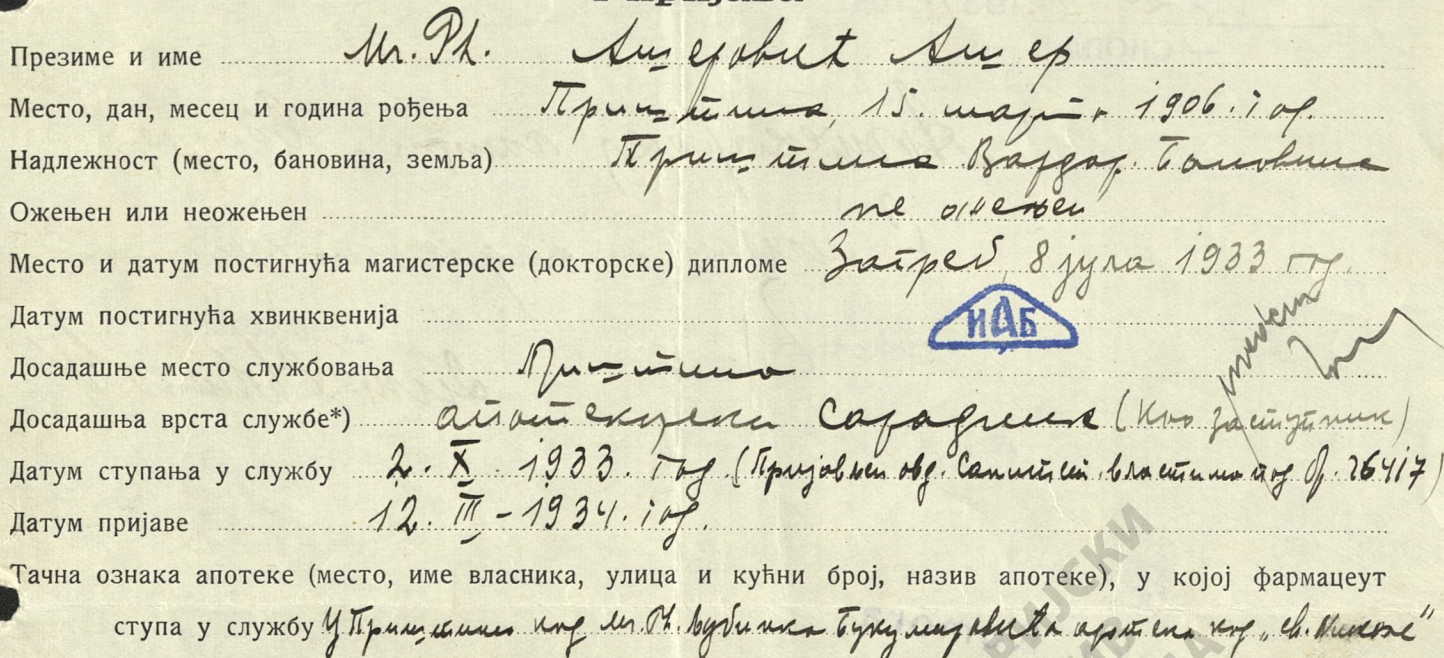 Презиме и име Mr. Ph. Ашеровић Ашер
Место, дан, месец и година рођења Приштина, 15. март, 1906. год.
Надлежност (место, бановина, земља) Приштина Вардар. Бановина
Ожењен или неожењен не ожењен
Место и датум постигнућа магистерске (докторске) дипломе Загреб, 8 јула 1933 год.
Датум постигнућа хвинквенија
ИАБ
Досадашње место службовања Приштина
Досадашња врста службе*) апотекарски сарадник (Као заступник)
Датум ступања у службу 2. X. 1933. год (Пријављен овд. Санитет. властима под бр. 26417)
Датум пријаве 12. III - 1934. год.
Тачна ознака апотеке (место, име власника, улица и кућни број, назив апотеке), у којој фармацеут
ступа у службу У Приштини код Mr. Ph. Букумировића апотека код „св. Николе"